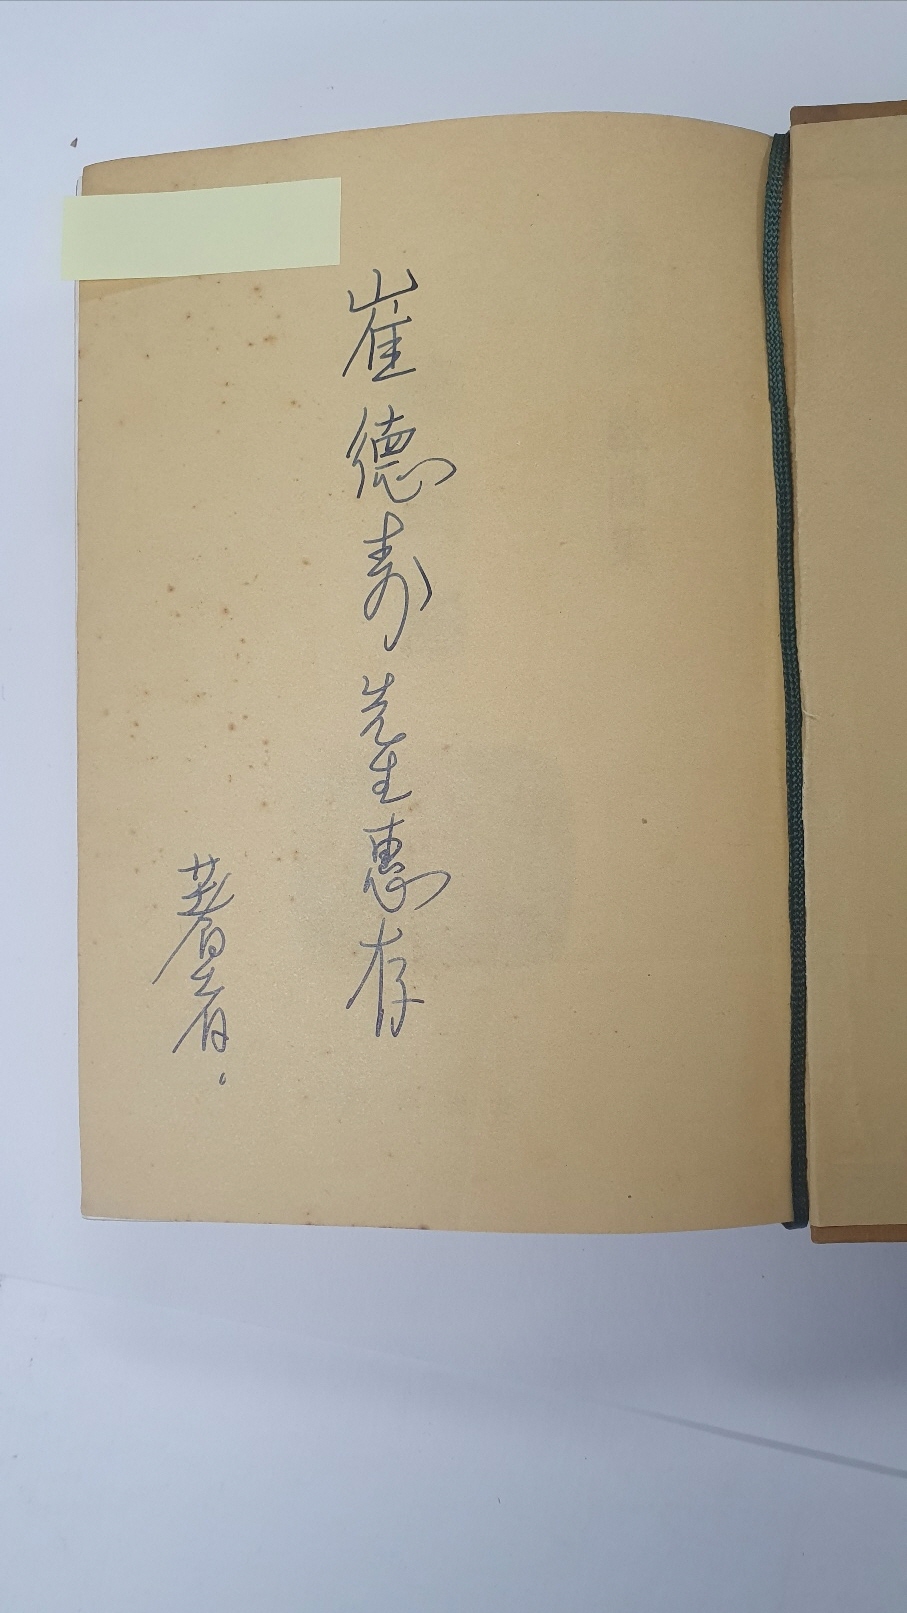 崔德寿先生惠存
著者。